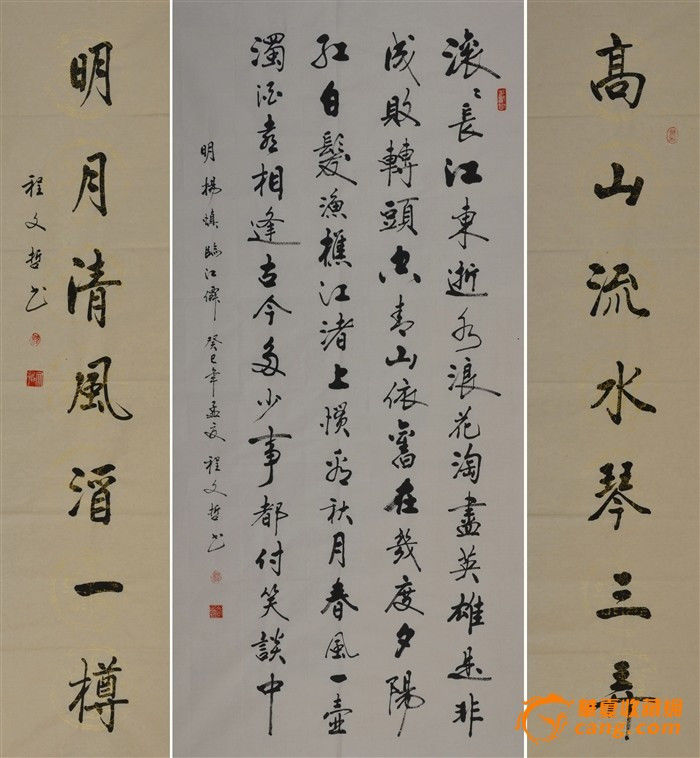 高山流水琴三弄
滚〻長江東逝水浪花淘盡英雄是非
成敗轉頭空青山依舊在幾度夕陽
紅白髮漁樵江渚上慣看秋月春風一壺
濁酒喜相逢古今多少事都付笑談中
明楊慎臨江僊 癸巳年孟夏 程文哲书
明月清風酒一樽
程文哲书
華夏收藏網
cang.com